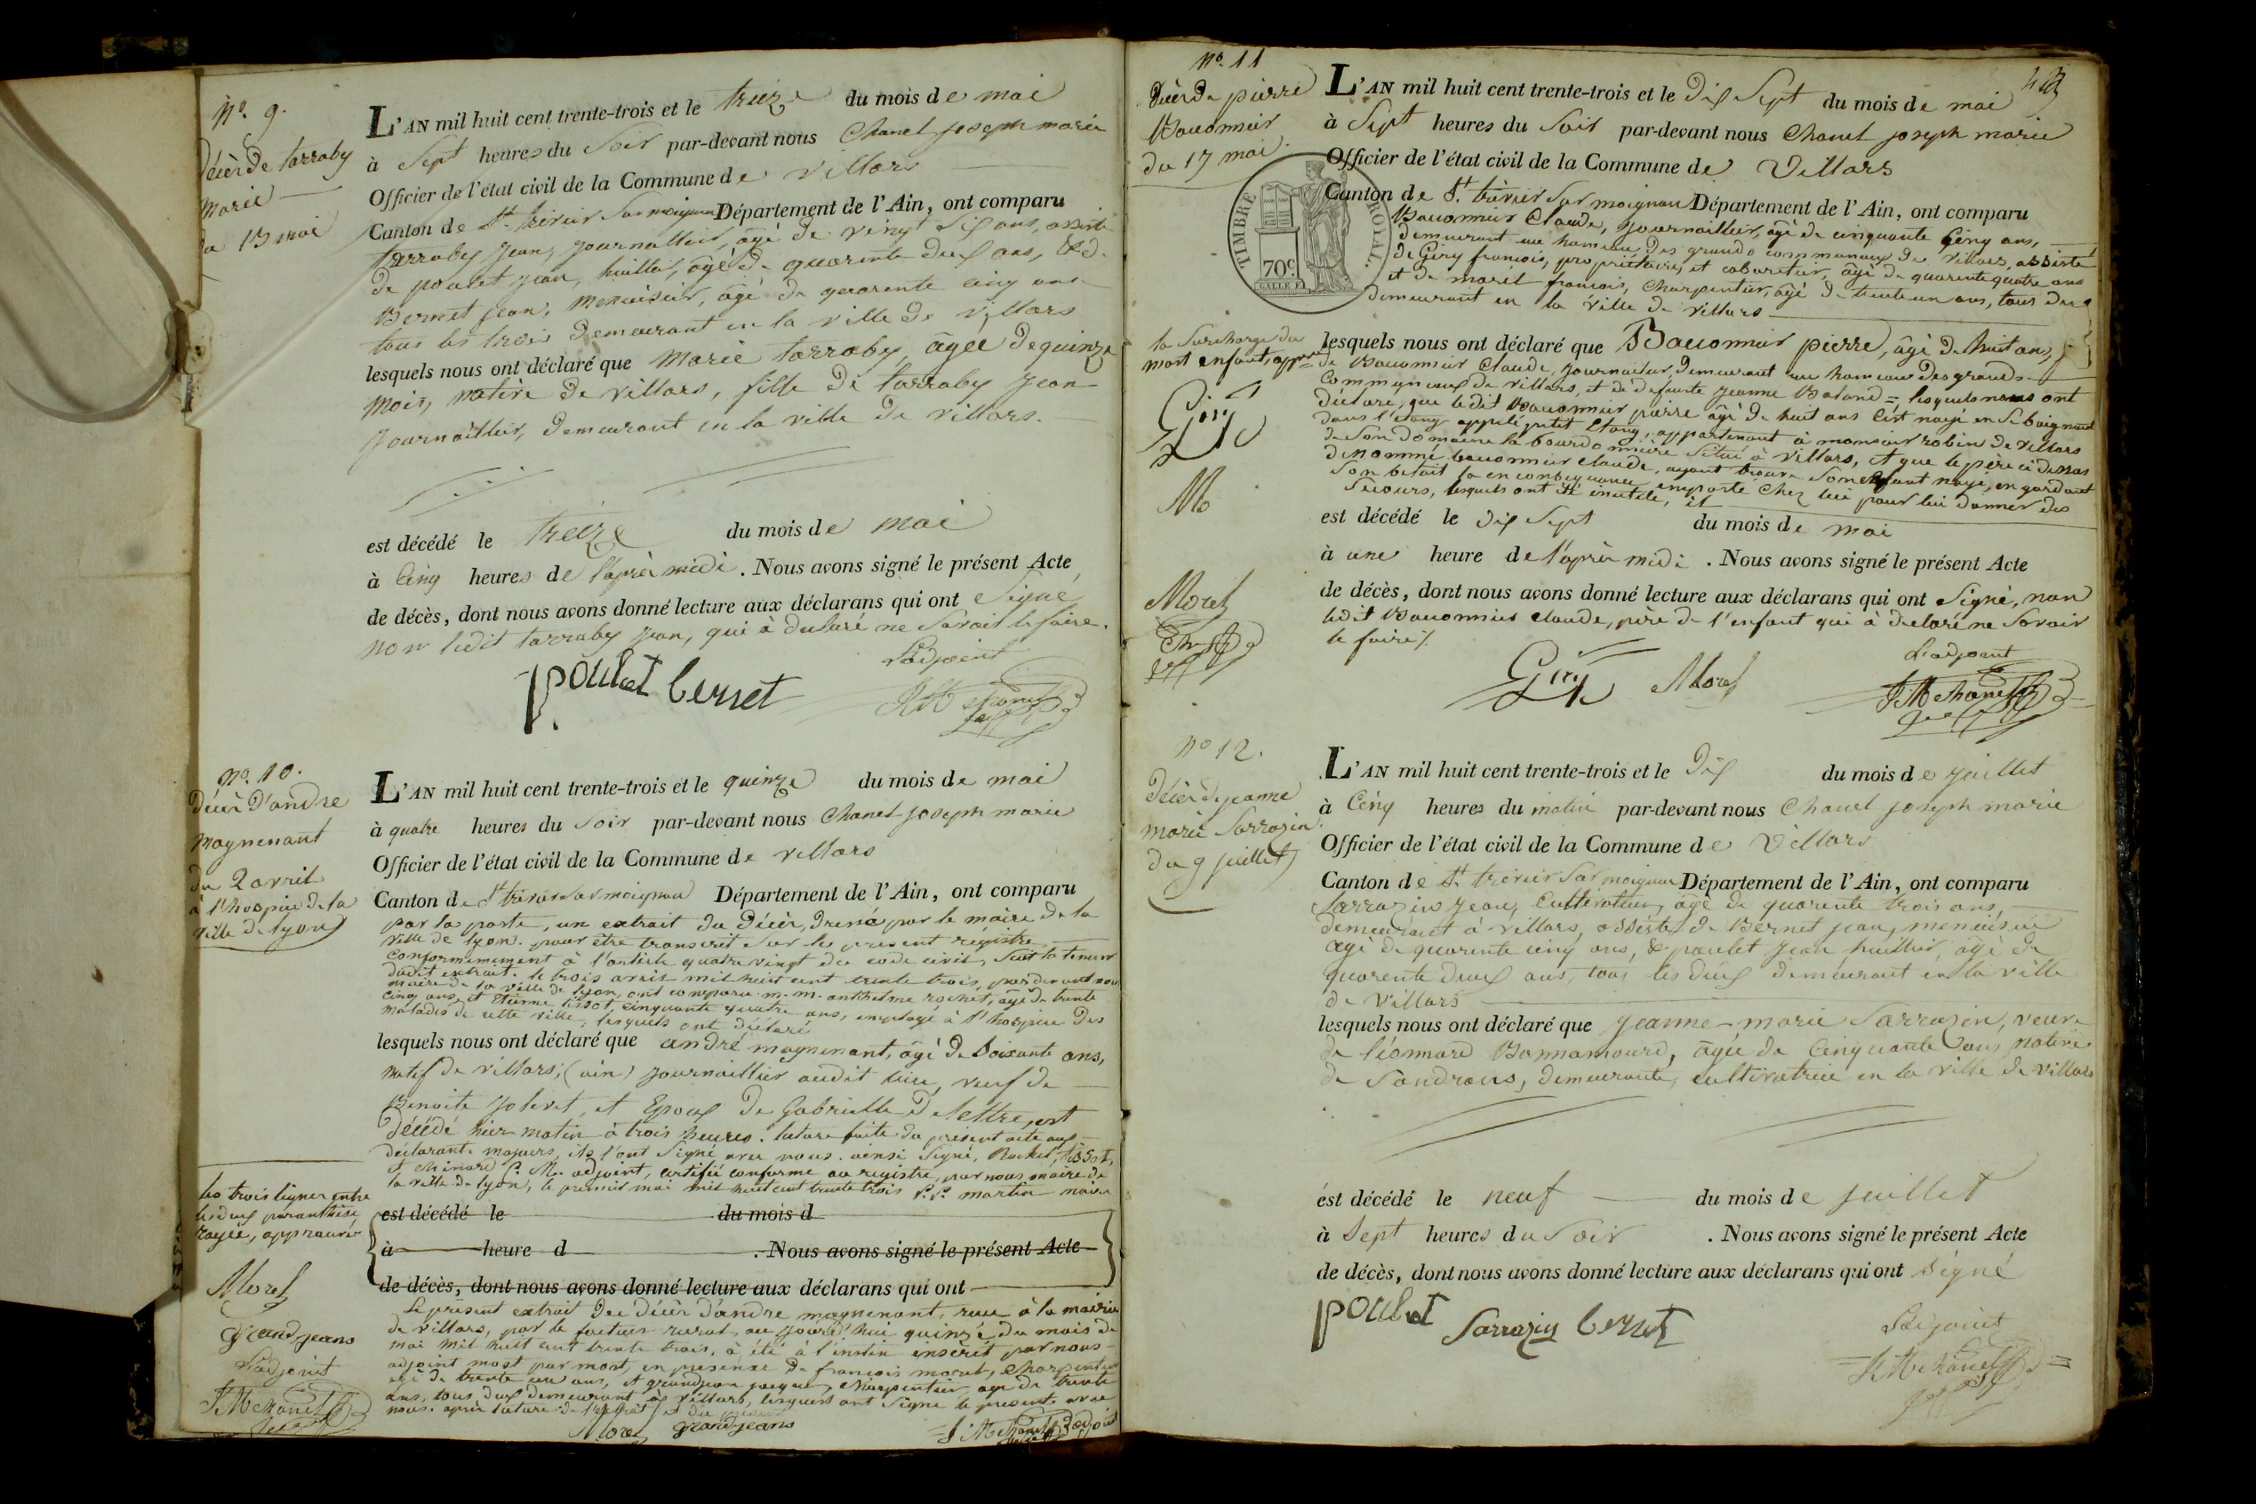 N.º 9.
Décès de tarraby
Marie
du 13 mai
L'AN mil huit cent trente-trois et le treize du mois de mai
à Sept heures du Soir par-devant nous Chanel joseph marie
Officier de l'état civil de la Commune de villars
Canton de St. trivier Sur moignan Département de l'Ain, ont comparu
tarraby jean, journaillier, âgé de vingt Six ans, assisté
de poulet jean, huillier, âgé de quarante deux ans, & de
Bernet jean, menuisier, âgé de quarante cinq ans
tous les trois demeurant en la ville de villars
lesquels nous ont déclaré que Marie tarraby, âgée de quinze
mois, native de villars, fille de tarraby jean
journaillier, demeurant en la ville de villars.
est décédé le treize du mois de mai
à Cinq heures de l'après midi. Nous avons signé le présent Acte
de décès, dont nous avons donné lecture aux déclarans qui ont Signé,
non ledit tarraby jean, qui à déclaré ne Savoir le faire.
L'adjoint
poulet bernet
N.º 10.
Décès d'andre
magnenant
du 2 avril
à l'hospice de la
ville de lyon
L'AN mil huit cent trente-trois et le quinze du mois de mai
à quatre heures du Soir par-devant nous Chanel joseph marie
Officier de l'état civil de la Commune de villars
Canton de St. trivier Sur moignan Département de l'Ain, ont comparu
par la poste, un extrait du décès, dressé par le maire de la
ville de lyon. pour être transcrit Sur le present régistre
conformément à l'article quatre vingt du code civil, Suit la teneur
dudit extrait. le trois avril mil huit cent trente trois, pardevant nous
maire de la ville de lyon, ont comparu m.m. anthelme rochet, âgé de trente
cinq ans, et Etienne tissot, cinquante quatre ans, employé à l'hospice des
malades de cette ville, lesquels ont déclaré
lesquels nous ont déclaré que andré magnenant, âgé de Soixante ans,
natif de villars, (ain) journaillier audit lieu, veuf de
Benoite joleret, et Epoux de Gabrielle Delettre, est
décédé hier matin à trois heures. lecture faite du présent acte aux
déclarants majeurs, ils l'ont Signé avec nous. ainsi Signé, Rochet, tissot,
et chinard C. M. adjoint, certifié conforme au registre, par nous maire de
la ville de lyon, le premier mai mil huit cent trente trois martin maire
les trois lignes entre
les deux paranthèse
rayée, approuvé
est décédé le du mois d
à heure d . Nous avons signé le présent Acte
de décès, dont nous avons donné lecture aux déclarans qui ont
Morel
Grandjeans
L'adjoint
JM Chanel
Le présent extrait du décès d'andre magnenant, reçu à la mairie
de villars, par le facteur rural, au jourd'hui quinze du mois de
mai mil huit cent trente trois, à été à l'instin inscrit par nous
adjoint mot par mot, en presence de françois morel, Charpentier
agé de trente un ans, et grandjean jacques, charpentier, agé de trente
ans, tous deux demeurant à villars, lesquels ont Signé le présent avec
nous. après lecture
Morel Grandjeans JM Chanel L'adjoint
N.º 11
Décès de pierre
Bauonnier
du 17 mai.
TIMBRE ROYAL.
70c
L'AN mil huit cent trente-trois et le dix Sept du mois de mai
à Sept heures du Soir par-devant nous Chanel joseph marie
Officier de l'état civil de la Commune de Villars
Canton de St. trivier Sur moignan Département de l'Ain, ont comparu
Bauonnier Claude, journaillier, âgé de cinquante Cinq ans,
demeurant au hameau des grands communaux de villars, assisté
de Giry françois, propriétaire, et cabaretier, âgé de quarante quatre ans
et de morel françois, Charpentier, âgé de trente un ans, tous deux
demeurant en la ville de villars
la Surcharge du
mot enfant, approuvé
lesquels nous ont déclaré que Bauonnier pierre, âgé de huit ans,
de Bauonnier Claude, journailier, demeurant au hameau des grands
Communaux de villars, et de defunte jeanne Baland = lesquels nous ont
déclaré, que ledit Bauonnier pierre âgé de huit ans C'est noyé en Se baignant
dans l'étang appelé petit Etang, appartenant à monsieur robin de villars
de Son domaine la bourdonnière Situé à villars, et que le père ci dessus
dénommé bauonnier claude, ayant trouvé Son enfant noyé, en gardant
Son bétail la en conséquence emporté chez lui pour lui donner des
Secours, lesquels ont été inutile, et
est décédé le dix Sept du mois de mai
à une heure de l'après midi. Nous avons signé le présent Acte
de décès, dont nous avons donné lecture aux déclarans qui ont Signé, non
ledit Bauonnier claude, père de l'enfant qui à declaré ne Savoir
le faire
Giry
Morel
L'adjoint
Giry Morel JM Chanel
N.º 12.
Décès de jeanne
marie Sarrazin
du 9 juillet
L'AN mil huit cent trente-trois et le dix du mois de juillet
à Cinq heures du matin par-devant nous Chanel joseph marie
Officier de l'état civil de la Commune de Villars
Canton de St. trivier Sur moignan Département de l'Ain, ont comparu
Sarrazin jean, Cultivateur, âgé de quarante trois ans,
demeurant à villars, assisté de Bernet jean, menuisier
âgé de quarante cinq ans, & poulet jean huillier, âgé de
quarante deux ans, tous les deux demeurant en la ville
de villars
lesquels nous ont déclaré que jeanne-marie Sarrazin, veuve
de léonnard Bonnamourd, âgée de Cinquante ans native
de Sandrans, demeurante, cultivatrice en la ville de villars
est décédé le neuf du mois de juillet
à Sept heures du Soir . Nous avons signé le présent Acte
de décès, dont nous avons donné lecture aux déclarans qui ont Signé
L'adjoint
poulet Sarrazin bernet JM Chanel